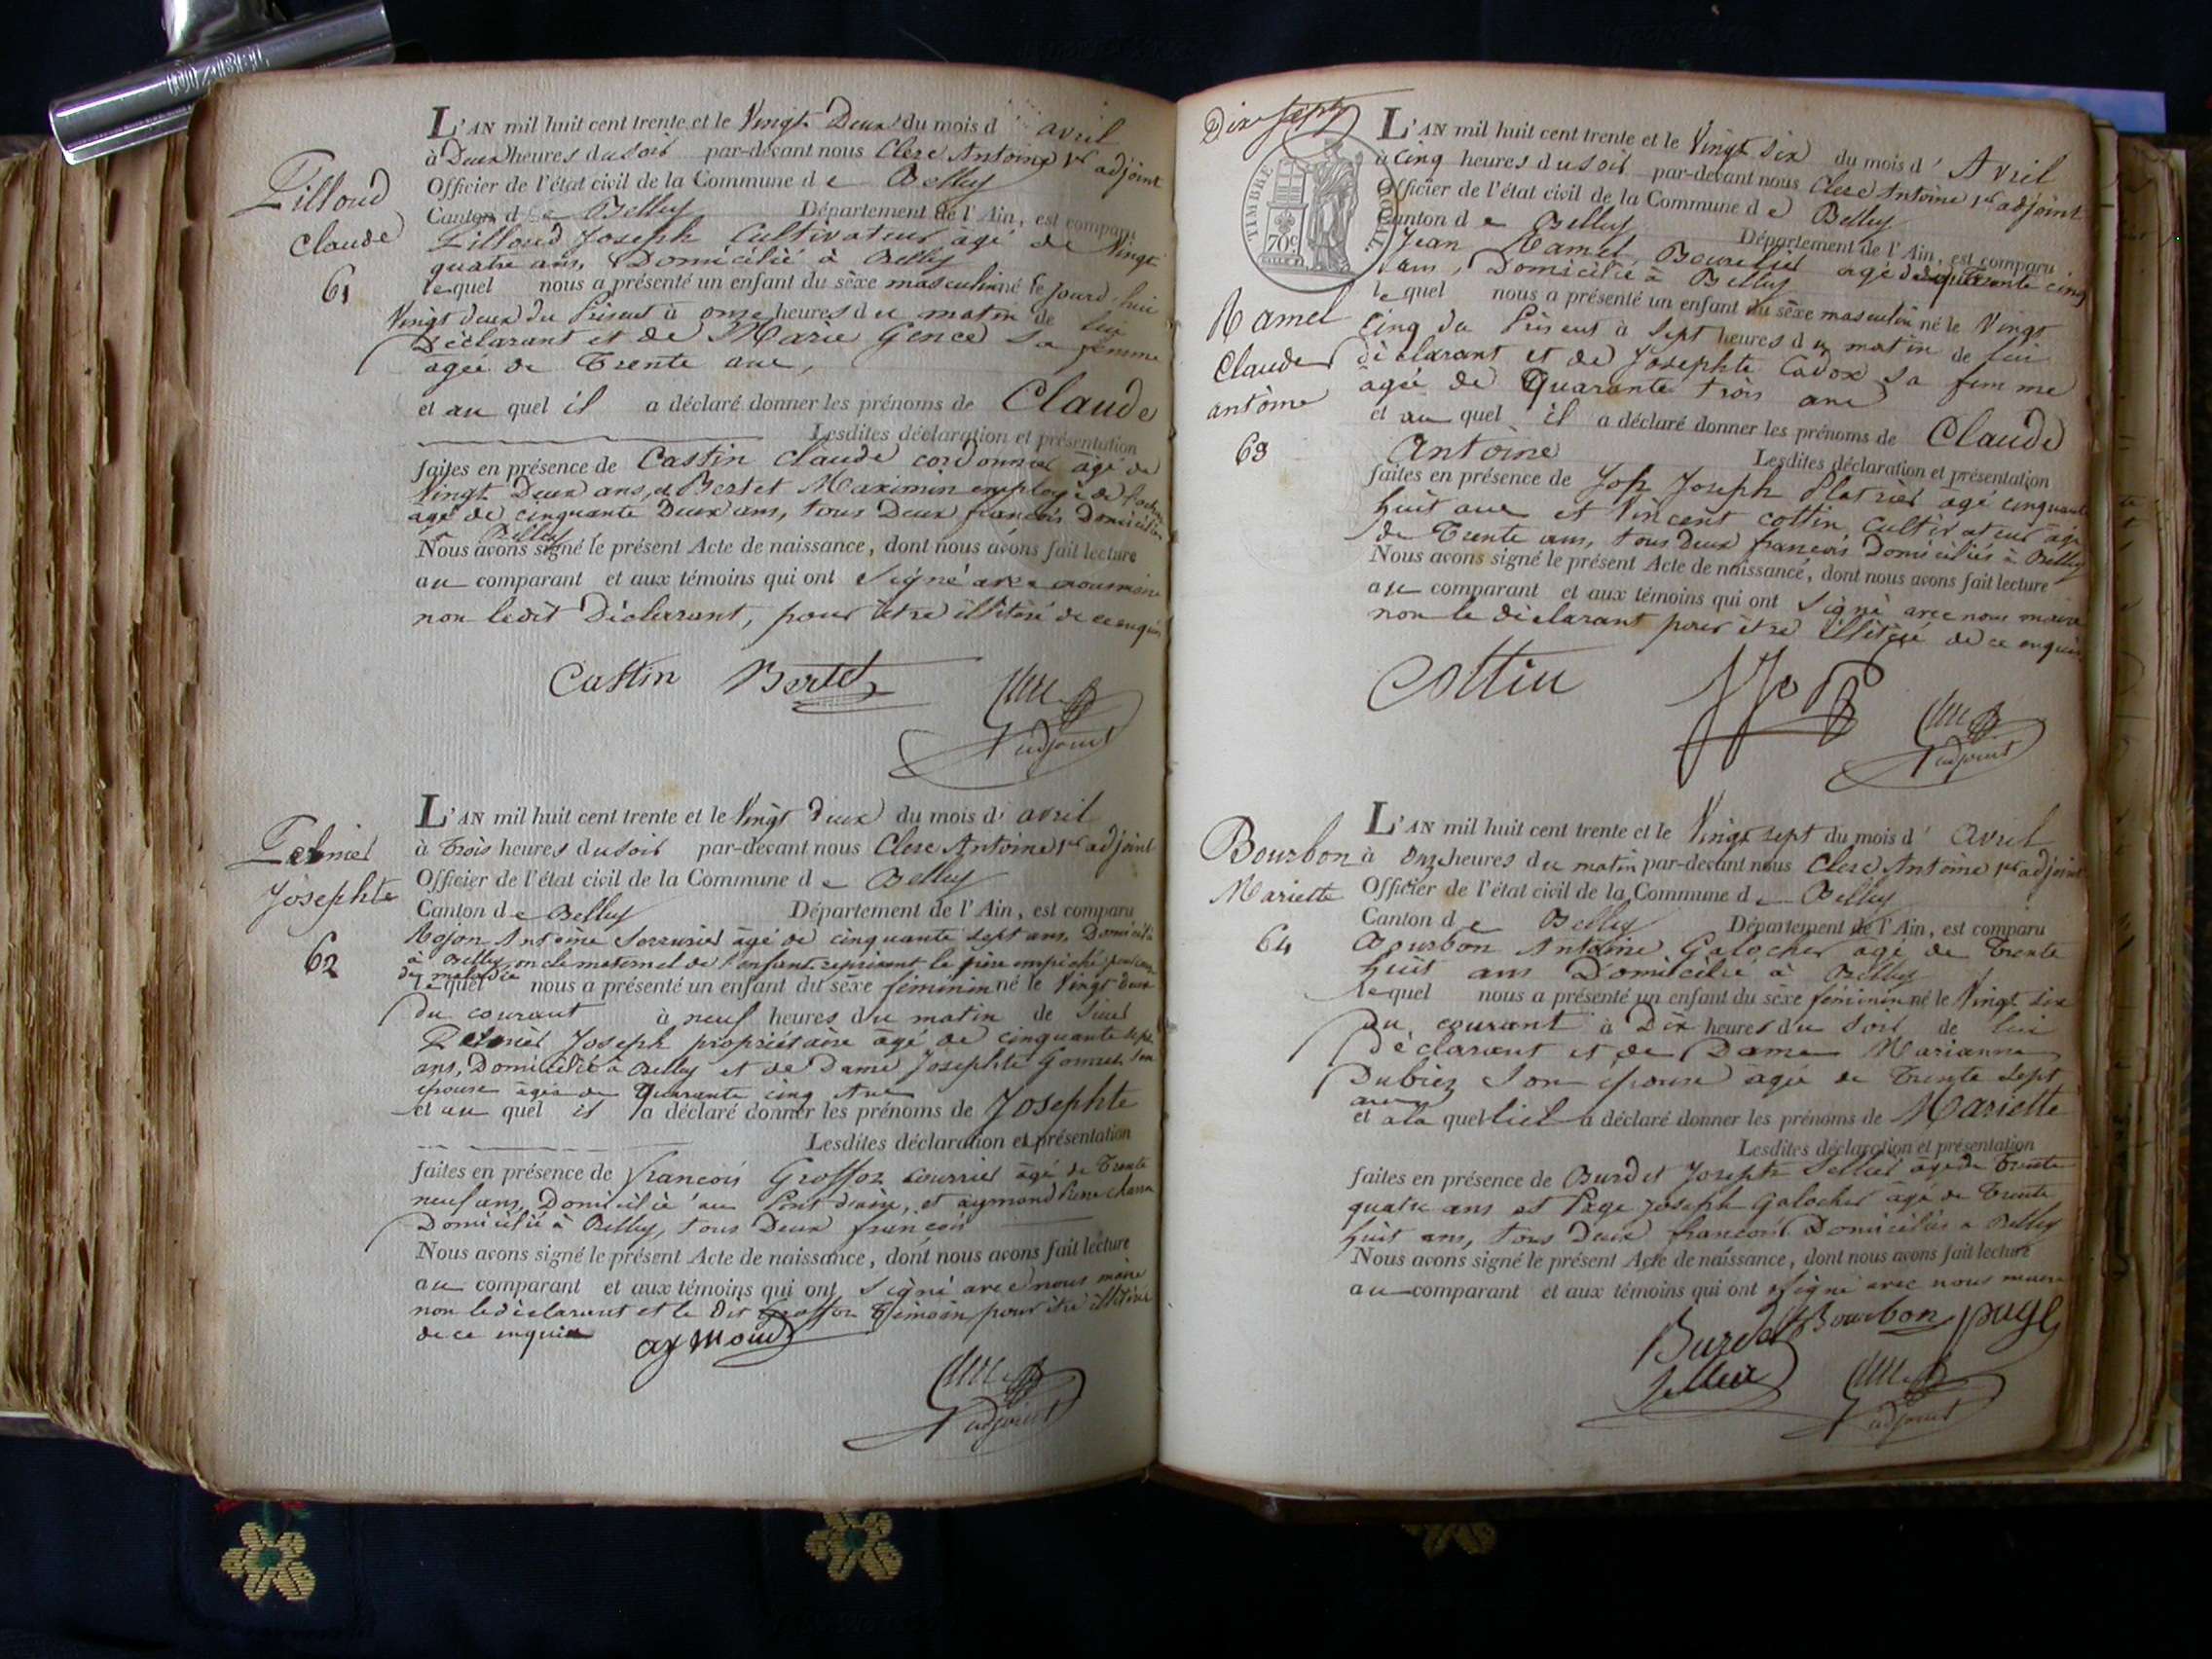 L'AN mil huit cent trente et le Vingt Deux du mois d' avril
à Deux heures du soir par-devant nous Clerc Antoine 1er adjoint
Officier de l'état civil de la Commune de Belley
Canton de Belley Département de l'Ain, est comparu
Lilloud Joseph Cultivateur âgé de Vingt
quatre ans, Domicilié à Belley
lequel nous a présenté un enfant du sèxe masculin né le jourd'hui
Vingt deux du Présent à onze heures du matin de lui
Déclarant et de Marie Gence sa femme
agée de Trente ans,
et au quel il a déclaré donner les prénoms de Claude
Lesdites déclaration et présentation
faites en présence de Castin Claude cordonnier âgé de
Vingt Deux ans, et Bertet Maximin employé de
agé de cinquante Deux ans, tous Deux français Domiciliés
à Belley
Nous avons signé le présent Acte de naissance, dont nous avons fait lecture
au comparant et aux témoins qui ont signé avec nous maire
non ledit Déclarant, pour être illitéré de ce enquis
Castin Bertet
adjoint
Lilloud
Claude
61
L'AN mil huit cent trente et le Vingt deux du mois d' avril
à Trois heures du soir par-devant nous Clerc Antoine 1er adjoint
Officier de l'état civil de la Commune de Belley
Canton de Belley Département de l'Ain, est comparu
Rojon Antoine Serrurier âgé de cinquante sept ans, Domicilié
à Belley oncle maternel de l'enfant représent le père empiché pour cause
de maladie
lequel nous a présenté un enfant du sèxe féminin né le Vingt deux
du courant à neuf heures du matin de Sieur
Joseph propriétaire âgé de cinquante sept
ans, Domicilié à Belley et de Dame Josephte Gonnet son
épouse âgée de Quarante cinq Ans
et au quel il a déclaré donner les prénoms de Josephte
Lesdites déclaration et présentation
faites en présence de François Grosson courrier âgé de Trente
neuf ans, Domicilié au Pont d'ain, et aymond
Domicilié à Belley, tous Deux français
Nous avons signé le présent Acte de naissance, dont nous avons fait lecture
au comparant et aux témoins qui ont signé avec nous maire
non le déclarant et le Dit Grosson Témoin pour être illitéré
de ce enquis aymond
adjoint
Josephte
62
Dix sept
TIMBRE ROYAL
70c
L'AN mil huit cent trente et le Vingt Six du mois d' Avril
à Cinq heures du soir par-devant nous Clerc Antoine 1er adjoint
Officier de l'état civil de la Commune de Belley
Canton de Belley Département de l'Ain, est comparu
Jean Ramel, Bourelier agé de quarante cinq
ans, Domicilié à Belley
lequel nous a présenté un enfant du sèxe masculin né le Vingt
Cinq du Présent à Sept heures du matin de lui
déclarant et de Josephte Cadox sa femme
âgée de Quarante trois ans
et au quel il a déclaré donner les prénoms de Claude
Antoine Lesdites déclaration et présentation
faites en présence de Joseph Platrier agé cinquante
huit ans et Vincent Cottin Cultivateur âgé
de Trente ans, tous Deux français Domiciliés à Belley
Nous avons signé le présent Acte de naissance, dont nous avons fait lecture
au comparant et aux témoins qui ont Signé avec nous maire
non le déclarant pour être illitéré de ce enquis
Cottin
adjoint
Ramel
Claude
antoine
63
L'AN mil huit cent trente et le Vingt sept du mois d' Avril
à onze heures du matin par-devant nous Clerc Antoine 1er adjoint
Officier de l'état civil de la Commune de Belley
Canton de Belley Département de l'Ain, est comparu
Bourbon Antoine Galocher agé de Trente
huit ans Domicilié à Belley
lequel nous a présenté un enfant du sèxe féminin né le Vingt six
du courant à Dix heures du soir de lui
déclarant et de Dame Marianne
Dubiez son épouse agée de Trente sept
ans
et à la quelle il a déclaré donner les prénoms de Mariette
Lesdites déclaration et présentation
faites en présence de Burdet Joseph Sellier âgé de Trente
quatre ans et Page Joseph Galocher âgé de Trente
huit ans, tous Deux français Domiciliés à Belley
Nous avons signé le présent Acte de naissance, dont nous avons fait lecture
au comparant et aux témoins qui ont signé avec nous maire
Burdet Bourbon page
Sellier
adjoint
Bourbon
Mariette
64